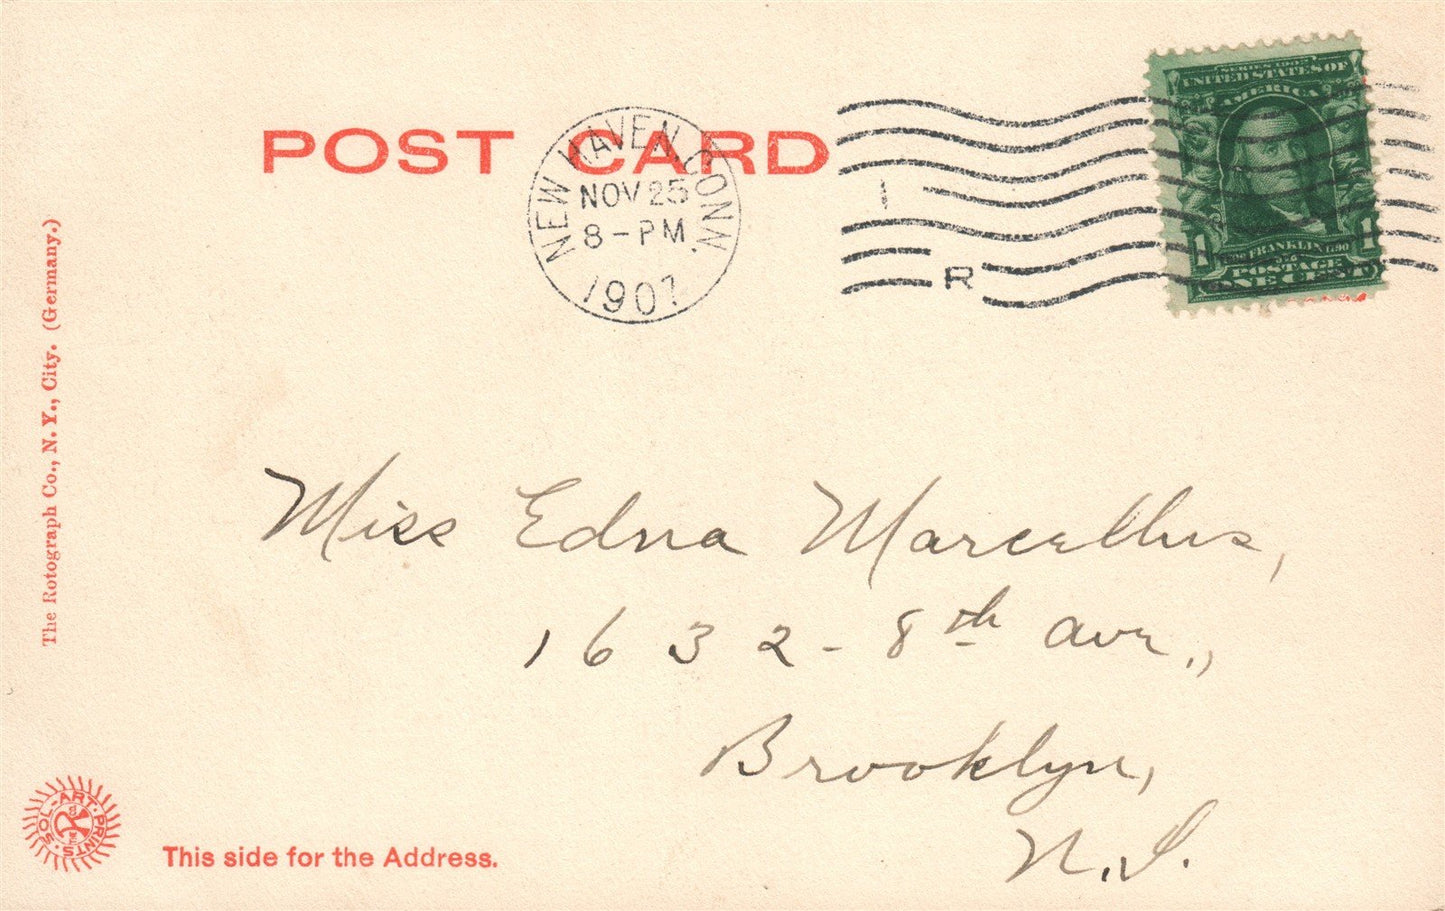 POST CARD
NEW HAVEN, CONN.
NOV 25
8-PM
1907
1
R
SERIES 1902
UNITED STATES OF
AMERICA
FRANKLIN
POSTAGE
1 1
ONE CENT
The Rotograph Co., N. Y., City. (Germany.)
Miss Edna Marcellus,
1632-8th Ave.,
Brooklyn,
N.Y.
SOL-ART PRINTS
This side for the Address.